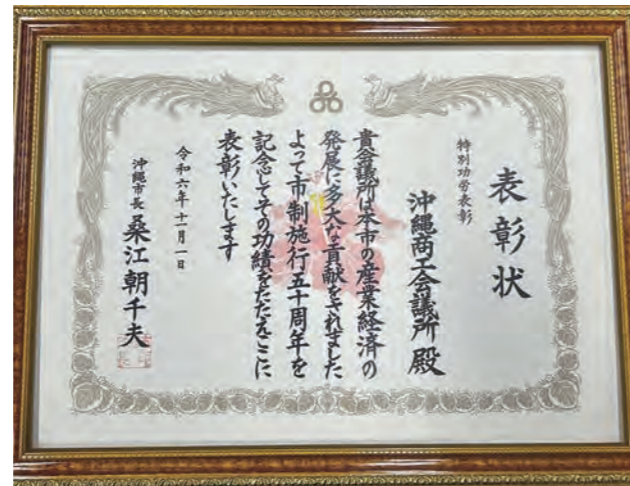 表彰状
特別功労表彰
沖縄商工会議所殿
貴会議所は本市の産業経済の
発展に多大な貢献をされました
よって市制施行五十周年を
記念してその功績をたたえここに
表彰いたします
令和六年十一月一日
沖縄市長 桑江朝千夫